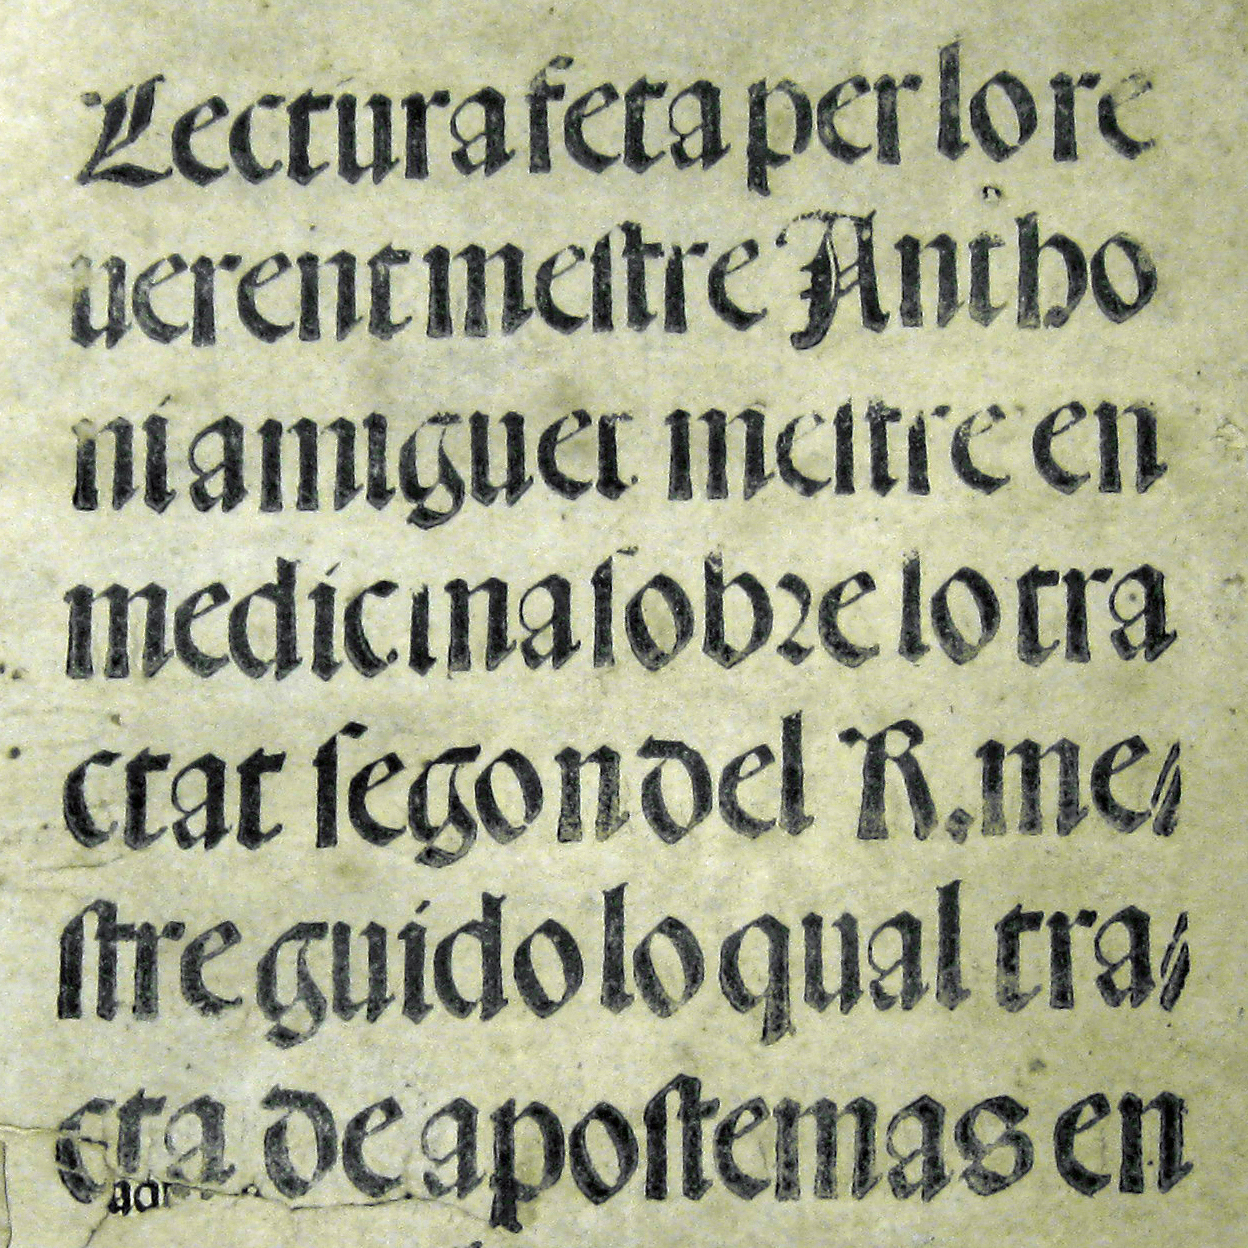 Lectura feta per lo re
uerent meſtre Antho
ni amiguet meſtre en
medicina ſobre lo tra
ctat ſegon del R. me/
ſtre guido lo qual tra/
cta de apoſtemas en